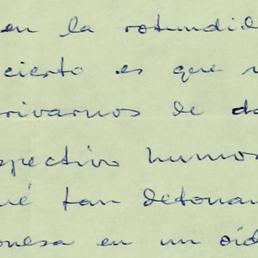 en la rotundid
cierto es que
rivarnos de da
spectivo humos
ué tan detonan
onesa en un oíd